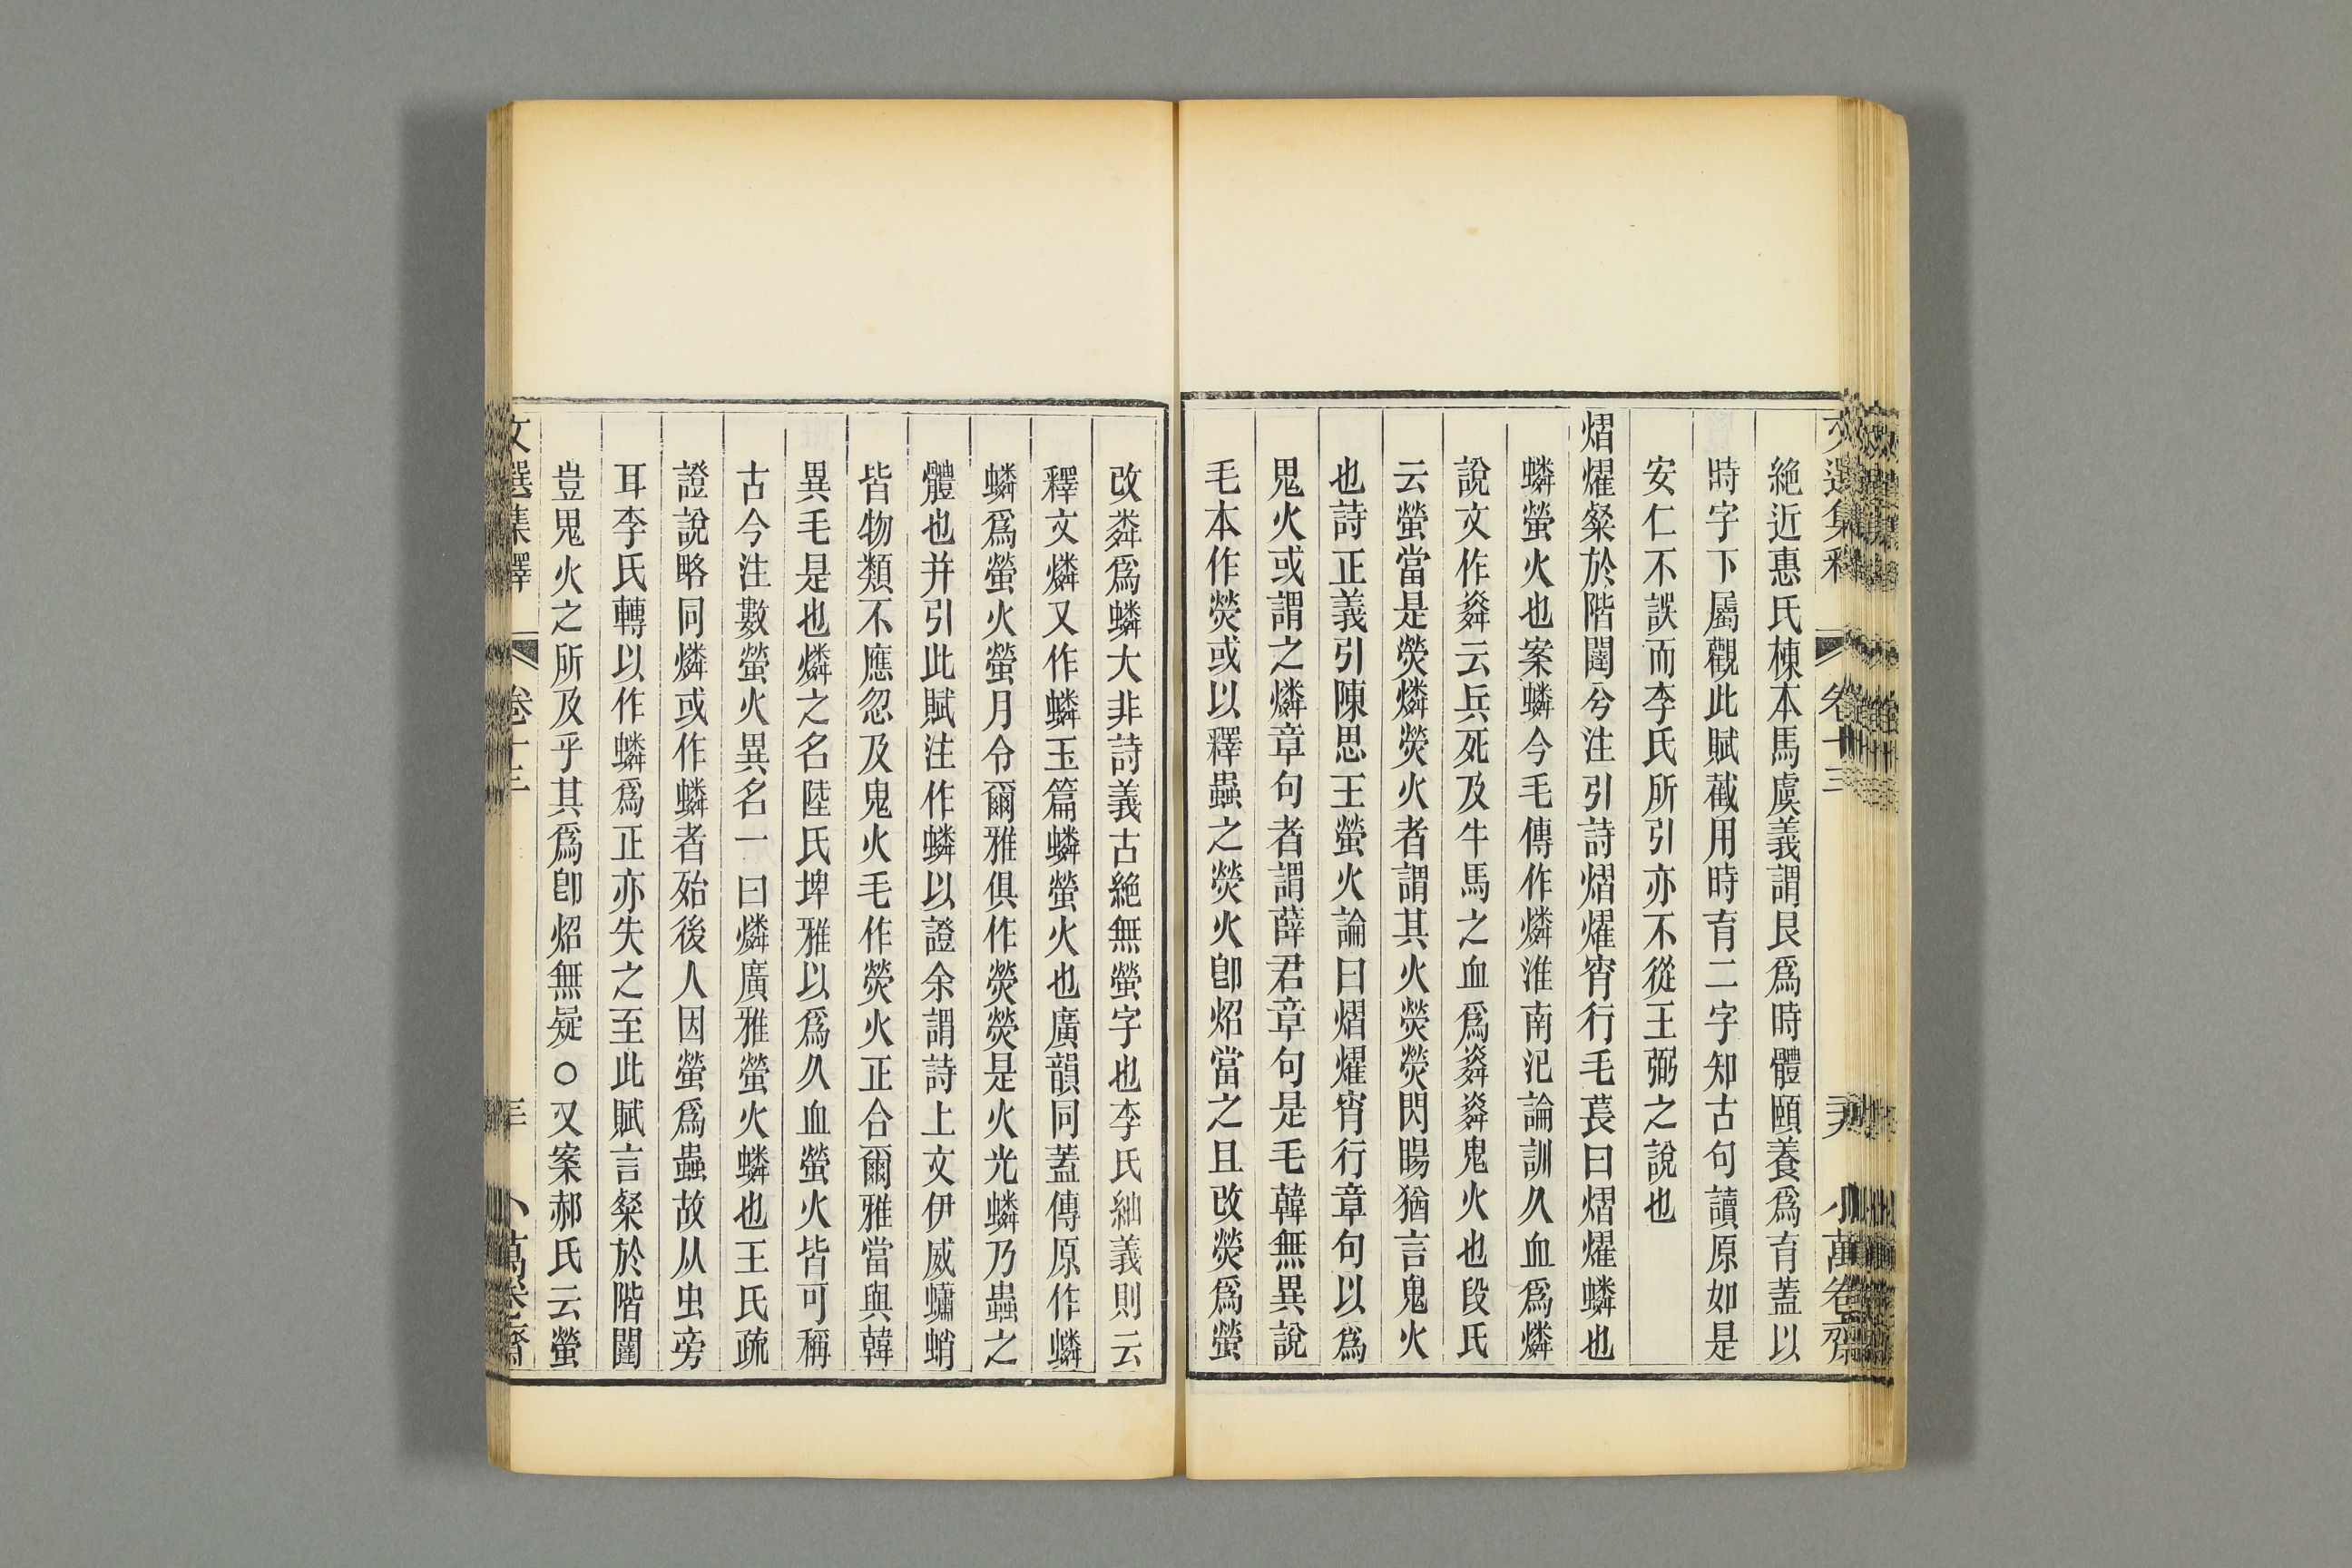 文選集釋 卷十三 小萬卷齋
絶近惠氏棟本馬虞義謂艮爲時體頤養爲育蓋以
時字下屬觀此賦截用時育二字知古句讀原如是
安仁不誤而李氏所引亦不從王弼之說也
熠燿粲於階闥兮注引詩熠燿宵行毛萇曰熠燿蠎也
蠎螢火也案蠎今毛傳作燐淮南氾論訓久血爲燐
說文作粦云兵死及牛馬之血爲粦粦鬼火也段氏
云螢當是熒燐熒火者謂其火熒熒閃暘猶言鬼火
也詩正義引陳思王螢火論曰熠燿宵行章句以爲
鬼火或謂之燐章句者謂薛君章句是毛韓無異說
毛本作熒或以釋蟲之熒火卽炤當之且改熒爲螢
改粦爲蠎大非詩義古絶無螢字也李氏紬義則云
釋文燐又作蠎玉篇蠎螢火也廣韻同蓋傳原作蠎
蠎爲螢火螢月令爾雅俱作熒熒是火光蠎乃蟲之
體也并引此賦注作蠎以證余謂詩上文伊威蠨蛸
皆物類不應忽及鬼火毛作熒火正合爾雅當與韓
異毛是也燐之名陸氏埤雅以爲久血螢火皆可稱
古今注數螢火異名一曰燐廣雅螢火蠎也王氏疏
證說略同燐或作蠎者殆後人因螢爲蟲故从虫旁
耳李氏轉以作蠎爲正亦失之至此賦言粲於階闥
豈鬼火之所及乎其爲卽炤無疑○又案郝氏云螢
文選集釋 卷十三 小萬卷齋